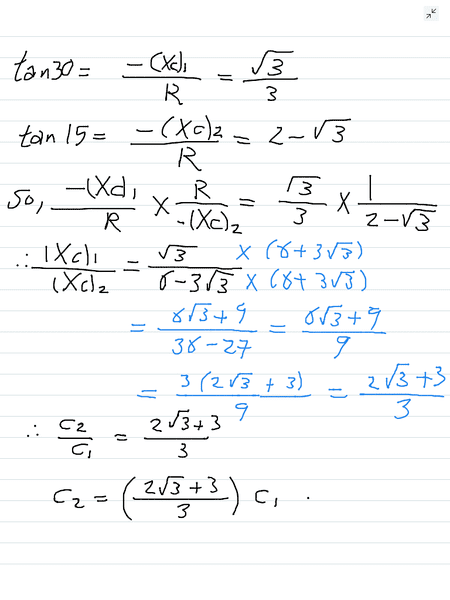 tan 30 = -(Xc)₁ / R = √3 / 3
tan 15 = -(Xc)₂ / R = 2 - √3
So, -(Xc)₁ / R × R / -(Xc)₂ = √3 / 3 × 1 / (2-√3)
∴ (Xc)₁ / (Xc)₂ = √3 / (6-3√3) × (6+3√3) / × (6+3√3)
= (6√3+9) / (36-27) = (6√3+9) / 9
= 3(2√3+3) / 9 = (2√3+3) / 3
∴ C₂ / C₁ = (2√3+3) / 3
C₂ = ( (2√3+3) / 3 ) C₁ .